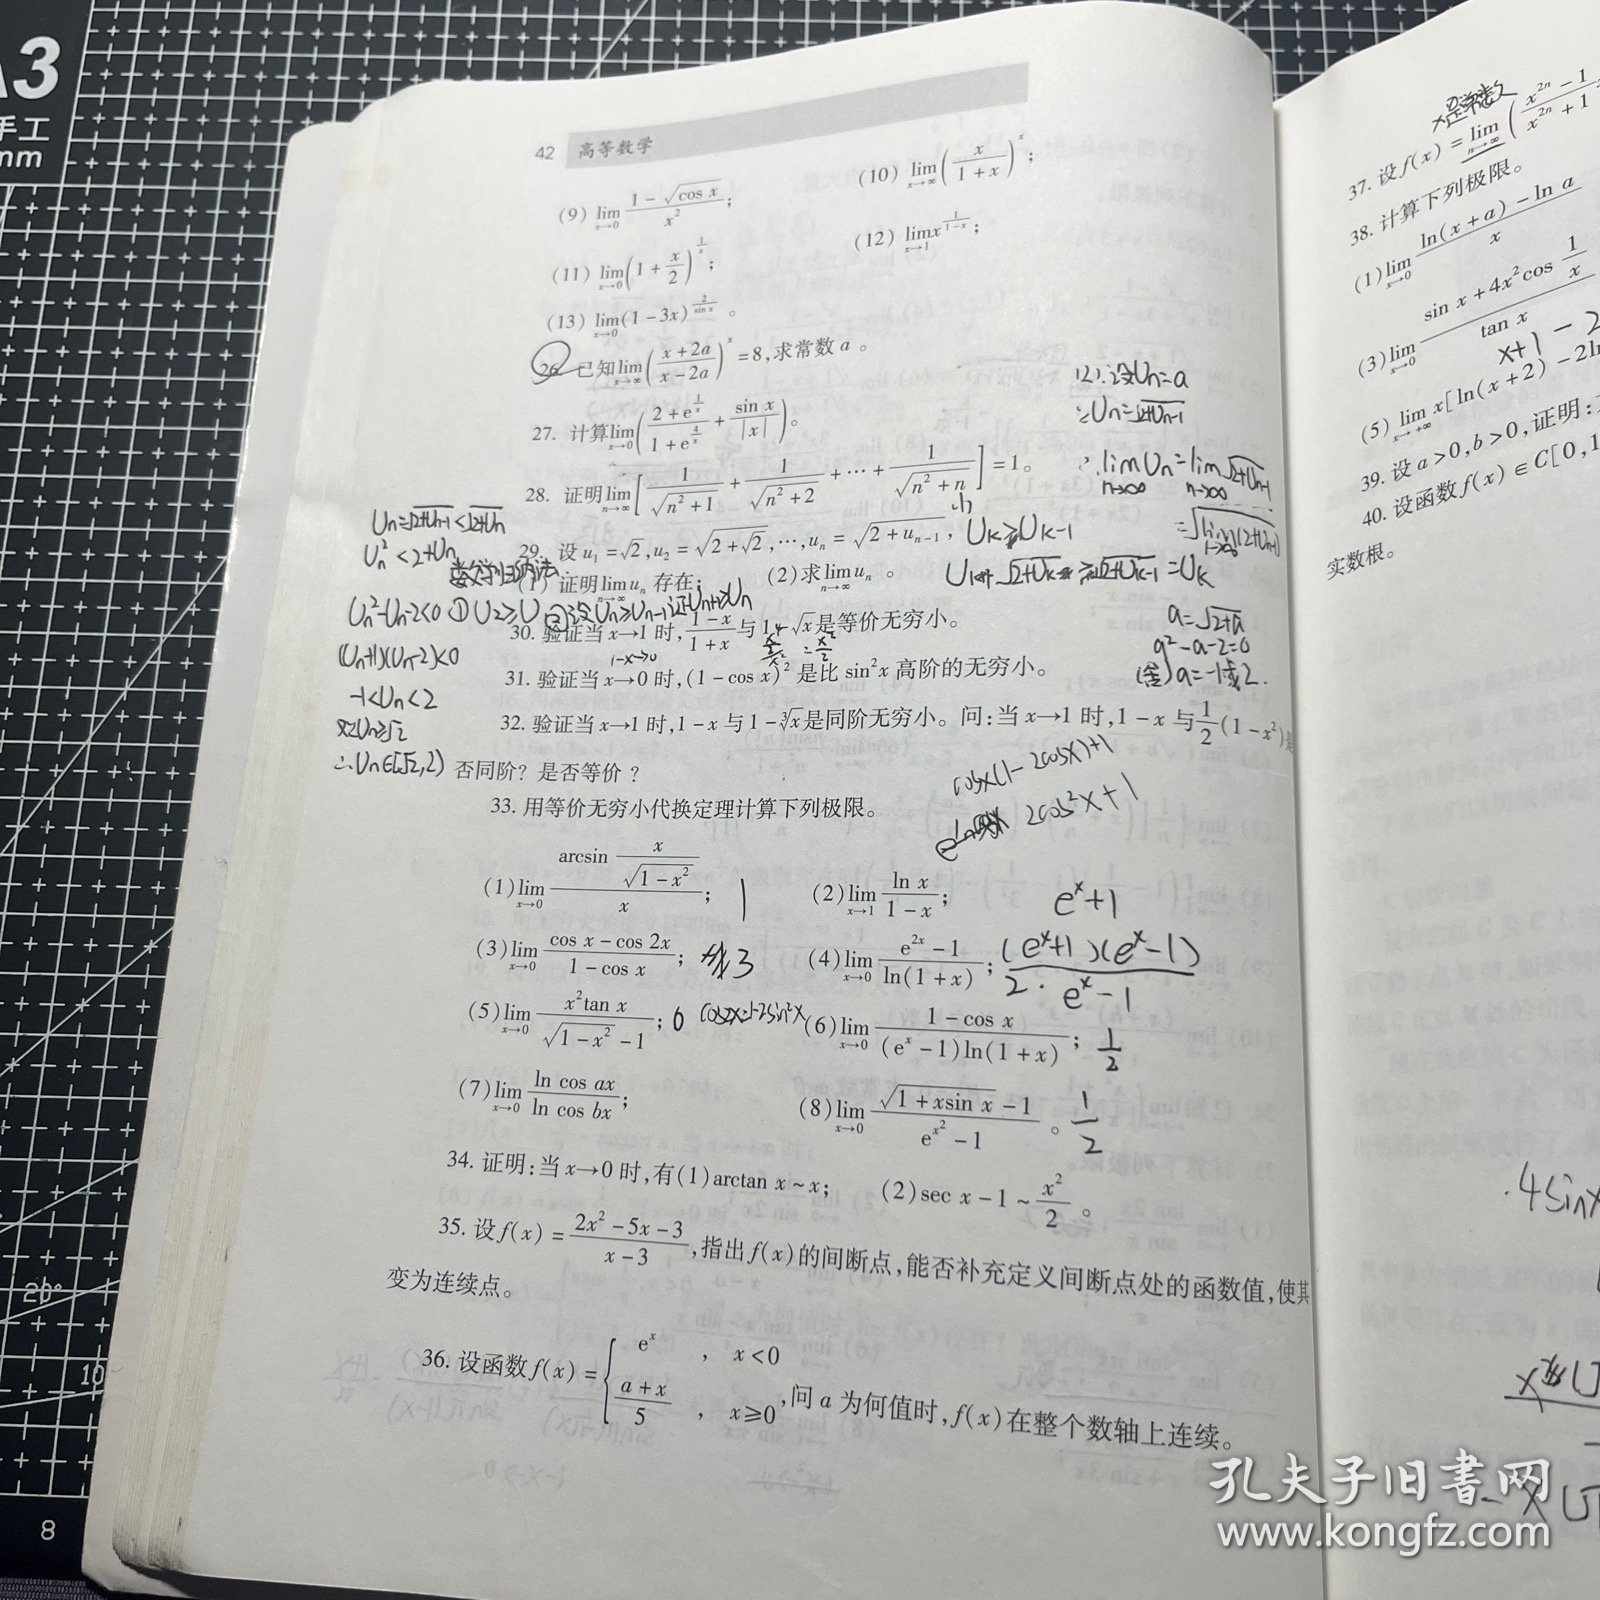 A3
手工
mm
20°
10
8
42 高等数学
(9) lim x→0 (1-√cos x)/x²;
(10) lim x→∞ (x/(1+x))^x;
(11) lim x→0 (1+x/2)^(1/x);
(12) lim x→1 x^(1/(1-x));
(13) lim x→0 (1-3x)^(2/sin x)。
26. 已知 lim x→∞ ((x+2a)/(x-2a))^x =8,求常数 a。
27. 计算 lim x→0 ((2+e^(1/x))/(1+e^(4/x)) + sin x/|x|)。
28. 证明 lim n→∞ [1/√(n²+1) + 1/√(n²+2) + ··· + 1/√(n²+n)] =1。
29. 设 u₁=√2, u₂=√(2+√2), ···, uₙ=√(2+uₙ₋₁),
(1) 证明 lim n→∞ uₙ 存在; (2) 求 lim n→∞ uₙ。
30. 验证当 x→1 时, (1-x)/(1+x) 与 1-√x 是等价无穷小。
31. 验证当 x→0 时,(1-cos x)² 是比 sin²x 高阶的无穷小。
32. 验证当 x→1 时,1-x 与 1-∛x 是同阶无穷小。问:当 x→1 时,1-x 与 1/2 (1-x²) 是
否同阶? 是否等价?
33. 用等价无穷小代换定理计算下列极限。
(1) lim x→0 (arcsin (x/√(1-x²)))/x; 1
(2) lim x→1 ln x/(1-x);
(3) lim x→0 (cos x-cos 2x)/(1-cos x); 3
(4) lim x→0 (e^(2x)-1)/ln(1+x);
(5) lim x→0 x²tan x/(√(1-x²)-1); 0
cos2x=1-2sin²x
(6) lim x→0 (1-cos x)/((e^x-1)ln(1+x)); 1/2
(7) lim x→0 ln cos ax/ln cos bx;
(8) lim x→0 (√(1+xsin x)-1)/(e^(x²)-1)。 1/2
34. 证明:当 x→0 时,有(1) arctan x~x; (2) sec x-1~x²/2。
35. 设 f(x)=(2x²-5x-3)/(x-3),指出 f(x)的间断点,能否补充定义间断点处的函数值,使其
变为连续点。
36. 设函数 f(x)={e^x, x<0; (a+x)/5, x≥0,问 a 为何值时,f(x)在整个数轴上连续。
(2).设Uₙ=a
∵Uₙ=√(2+Uₙ₋₁)
∴lim n→∞ Uₙ=lim n→∞ √(2+Uₙ₋₁)
=√(lim n→∞ (2+Uₙ₋₁))
a=√(2+a)
a²-a-2=0
(舍)a=-1或2.
Uₙ=√(2+Uₙ₋₁)<√(2+Uₙ)
Uₙ²<2+Uₙ
数学归纳法
Uₙ²-Uₙ-2<0
①U₂≥U ②设Uₙ≥Uₙ₋₁证Uₙ₊₁≥Uₙ
(Uₙ+1)(Uₙ-2)<0
-1<Uₙ<2
∴Uₙ∈[√2,2)
Uₖ≥Uₖ₋₁
1-x→0
cosx(1-2cosx)+1
2cos²x+1
e^x+1
(e^x+1)(e^x-1)
2·e^x-1
x是常数
37. 设 f(x)=lim n→∞ ((x^(2n)-1)/(x^(2n)+1)
38. 计算下列极限。
(1) lim x→0 (ln(x+a)-ln a)/x
(3) lim x→0 (sin x+4x²cos 1/x)/tan x
x+1 - 2
(5) lim x→+∞ x[ln(x+2)-2ln
39. 设 a>0,b>0,证明:
40. 设函数 f(x)∈C[0,1
实数根。
4sinx
孔夫子旧书网
www.kongfz.com